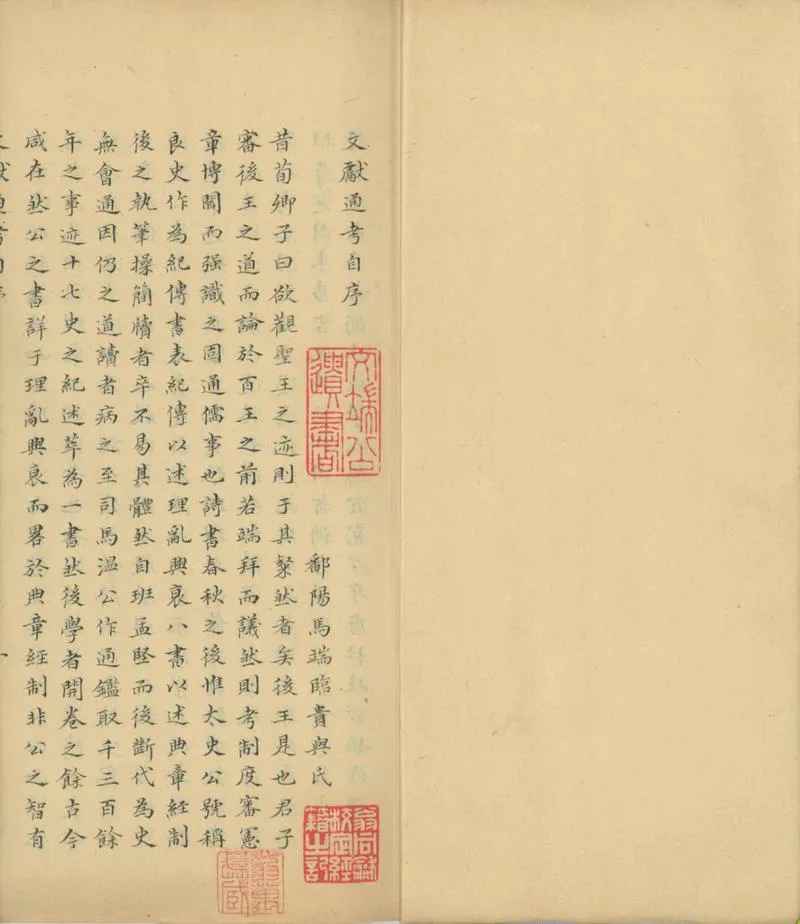 文獻通考自序
鄱陽馬端臨貴與氏
昔荀卿子曰欲觀聖王之迹則于其粲然者矣後王是也君子
審後王之道而論於百王之前若端拜而議然則考制度審憲
章博聞而强識之固通儒事也詩書春秋之後惟太史公號稱
良史作為紀傳書表紀傳以述理亂興衰八書以述典章經制
後之執筆操簡牘者卒不易其體然自班孟堅而後斷代為史
無會通因仍之道讀者病之至司馬溫公作通鑑取千三百餘
年之事迹十七史之紀述萃為一書然後學者開卷之餘古今
咸在然公之書詳于理亂興衰而畧於典章經制非公之智有
文獻通考自序
一
文端公遺書
翁同龢校定經籍之記